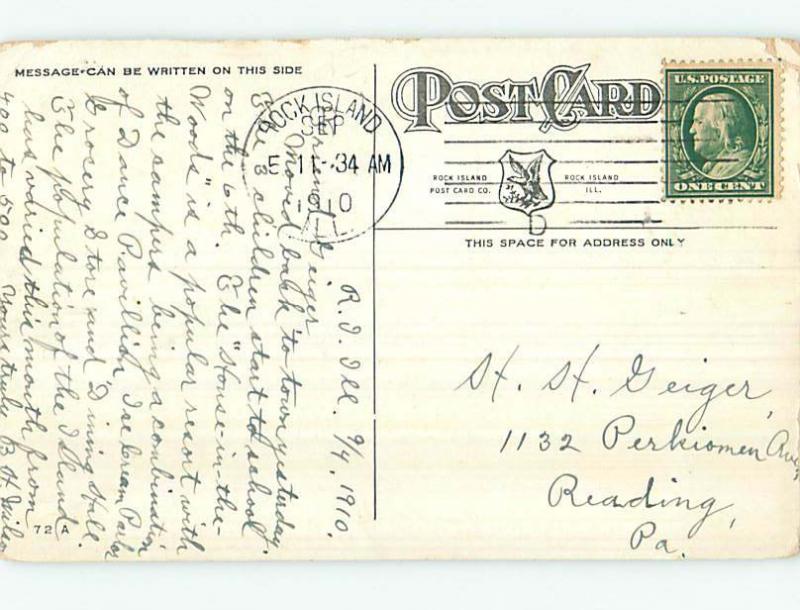 MESSAGE CAN BE WRITTEN ON THIS SIDE
POST CARD
U.S. POSTAGE
ONE CENT
ROCK ISLAND
SEP
5-11-34 AM
1910
D
ROCK ISLAND POST CARD CO.
ROCK ISLAND ILL.
THIS SPACE FOR ADDRESS ONLY
R. I. Ill. 9/4, 1910.
Friend Geiger
Moved back to town yesterday.
The 3 children start to school
on the 6th. The "House-in-the-
Woods" is a popular resort with
the campers being a combination
of Dance Pavillion, Ice Cream Parlor
Grocery Store and Dining Hall.
The population of the Island
has varied this month from
400 to 500. Yours truly B. H.
72 A
H. H. Geiger,
1132 Perkiomen Ave,
Reading,
Pa.